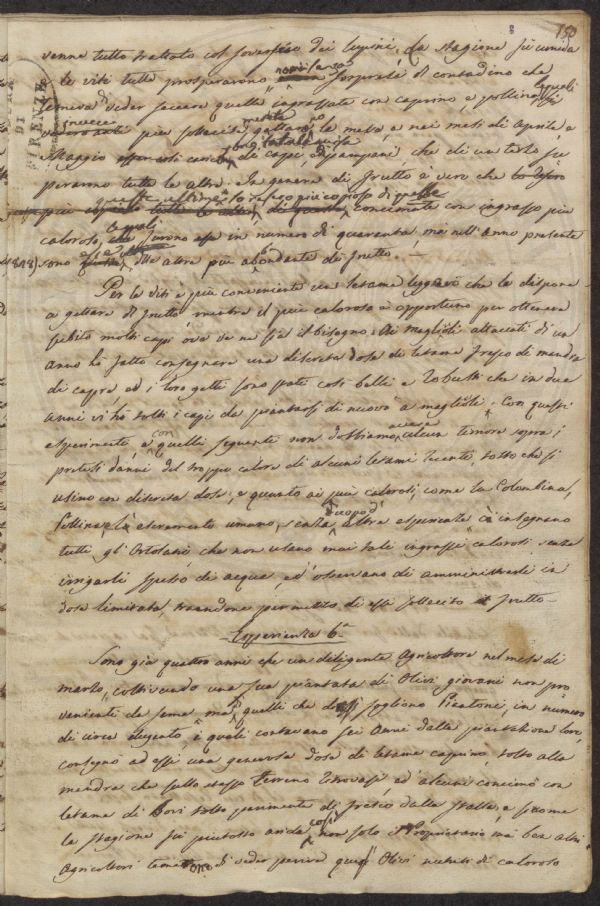 150
venne tutto trattato col sovescio dei lupini. La stagione fù umida
e le viti tutte prosperarono non senza sorpresa del contadino che
temeva di veder seccare quelle ingrassate con caprino, e pollina, le quali
invece più sollecitamente la messa, e nei mesi di Aprile, e
Maggio di capi, e pampani, che di un terzo su
perarono tutte le altre. In genere di frutto è vero che
più concimate con ingrasso più
caloroso, le quali furono in numero di quaranta, mà nell'anno presente
(1818) sono alle altre più abbondante di frutto. —
Per le viti è più conveniente un letame leggero che le dispone
a gettare di frutto mentre il più caloroso è opportuno per ottenere
subito molti capi ove ve ne sia il bisogno. Ai maglioli attaccati di un
anno hò fatto consegnare una discreta dose di letame fresco di mandra
di capre, ed i loro getti sono stati così belli e robusti che in due
anni vi hò tolti i capi da piantarsi di nuovo a maglioli. Con questi
esperimenti, e con quelli seguenti non dobbiamo avere alcun timore sopra i
pretesi danni del troppo calore di alcuni letami recenti, tosto che si
usino con discreta dose, e quanto ai più calorosi, come la Colombina,
Pollina, e lo sterco umano, senza d'uopo d'altre esperienze cè insegnano
tutti gli Ortolani, che non usano mai tali ingrassi calorosi senza
irrigarli spesso di acqua, ed' osservano di amministrarli in
dose limitata, traendone per mezzo di essi sollecito il frutto —
Esperienza 6.a
Sono già quattro anni che un diligente Agricoltore nel mese di
marzo, coltivando una sua piantata di Olivi giovani non pro
venienti da seme mà di quelli che si sogliono Piantoni, in numero
di circa dugento, i quali contavano sei Anni dalla piantazione loro,
consegnò ad essi una generosa dose di letame caprino, tolto alla
mandra che sullo stesso terreno trovavasi, ed' alcuni concimò con
letame di Bovi tolto parimente di fresco dalla stalla, e siccome
la stagione fù piuttosto arida, così non solo il Proprietario mà ben altri
Agricoltori temettero di veder perire questi Olivi nutriti di caloroso